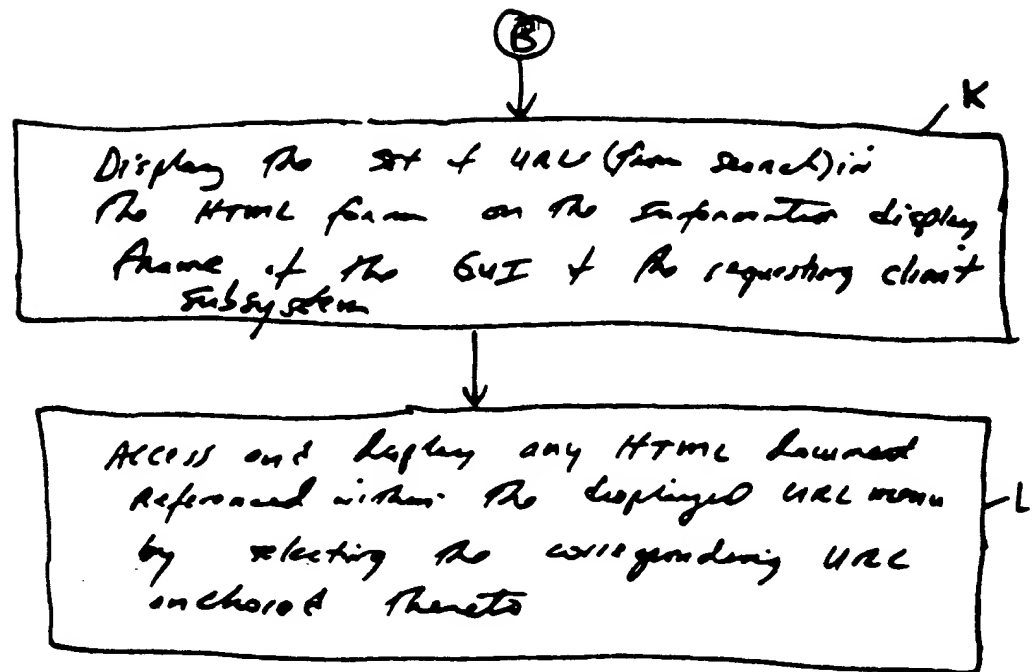 B
K
Display the set of URLs (from search) in
the HTML form on the information display
frame of the GUI of the requesting client
subsystem
Access and display any HTML document
referenced within the displayed URL menu
L
by selecting the corresponding URL
anchored thereto